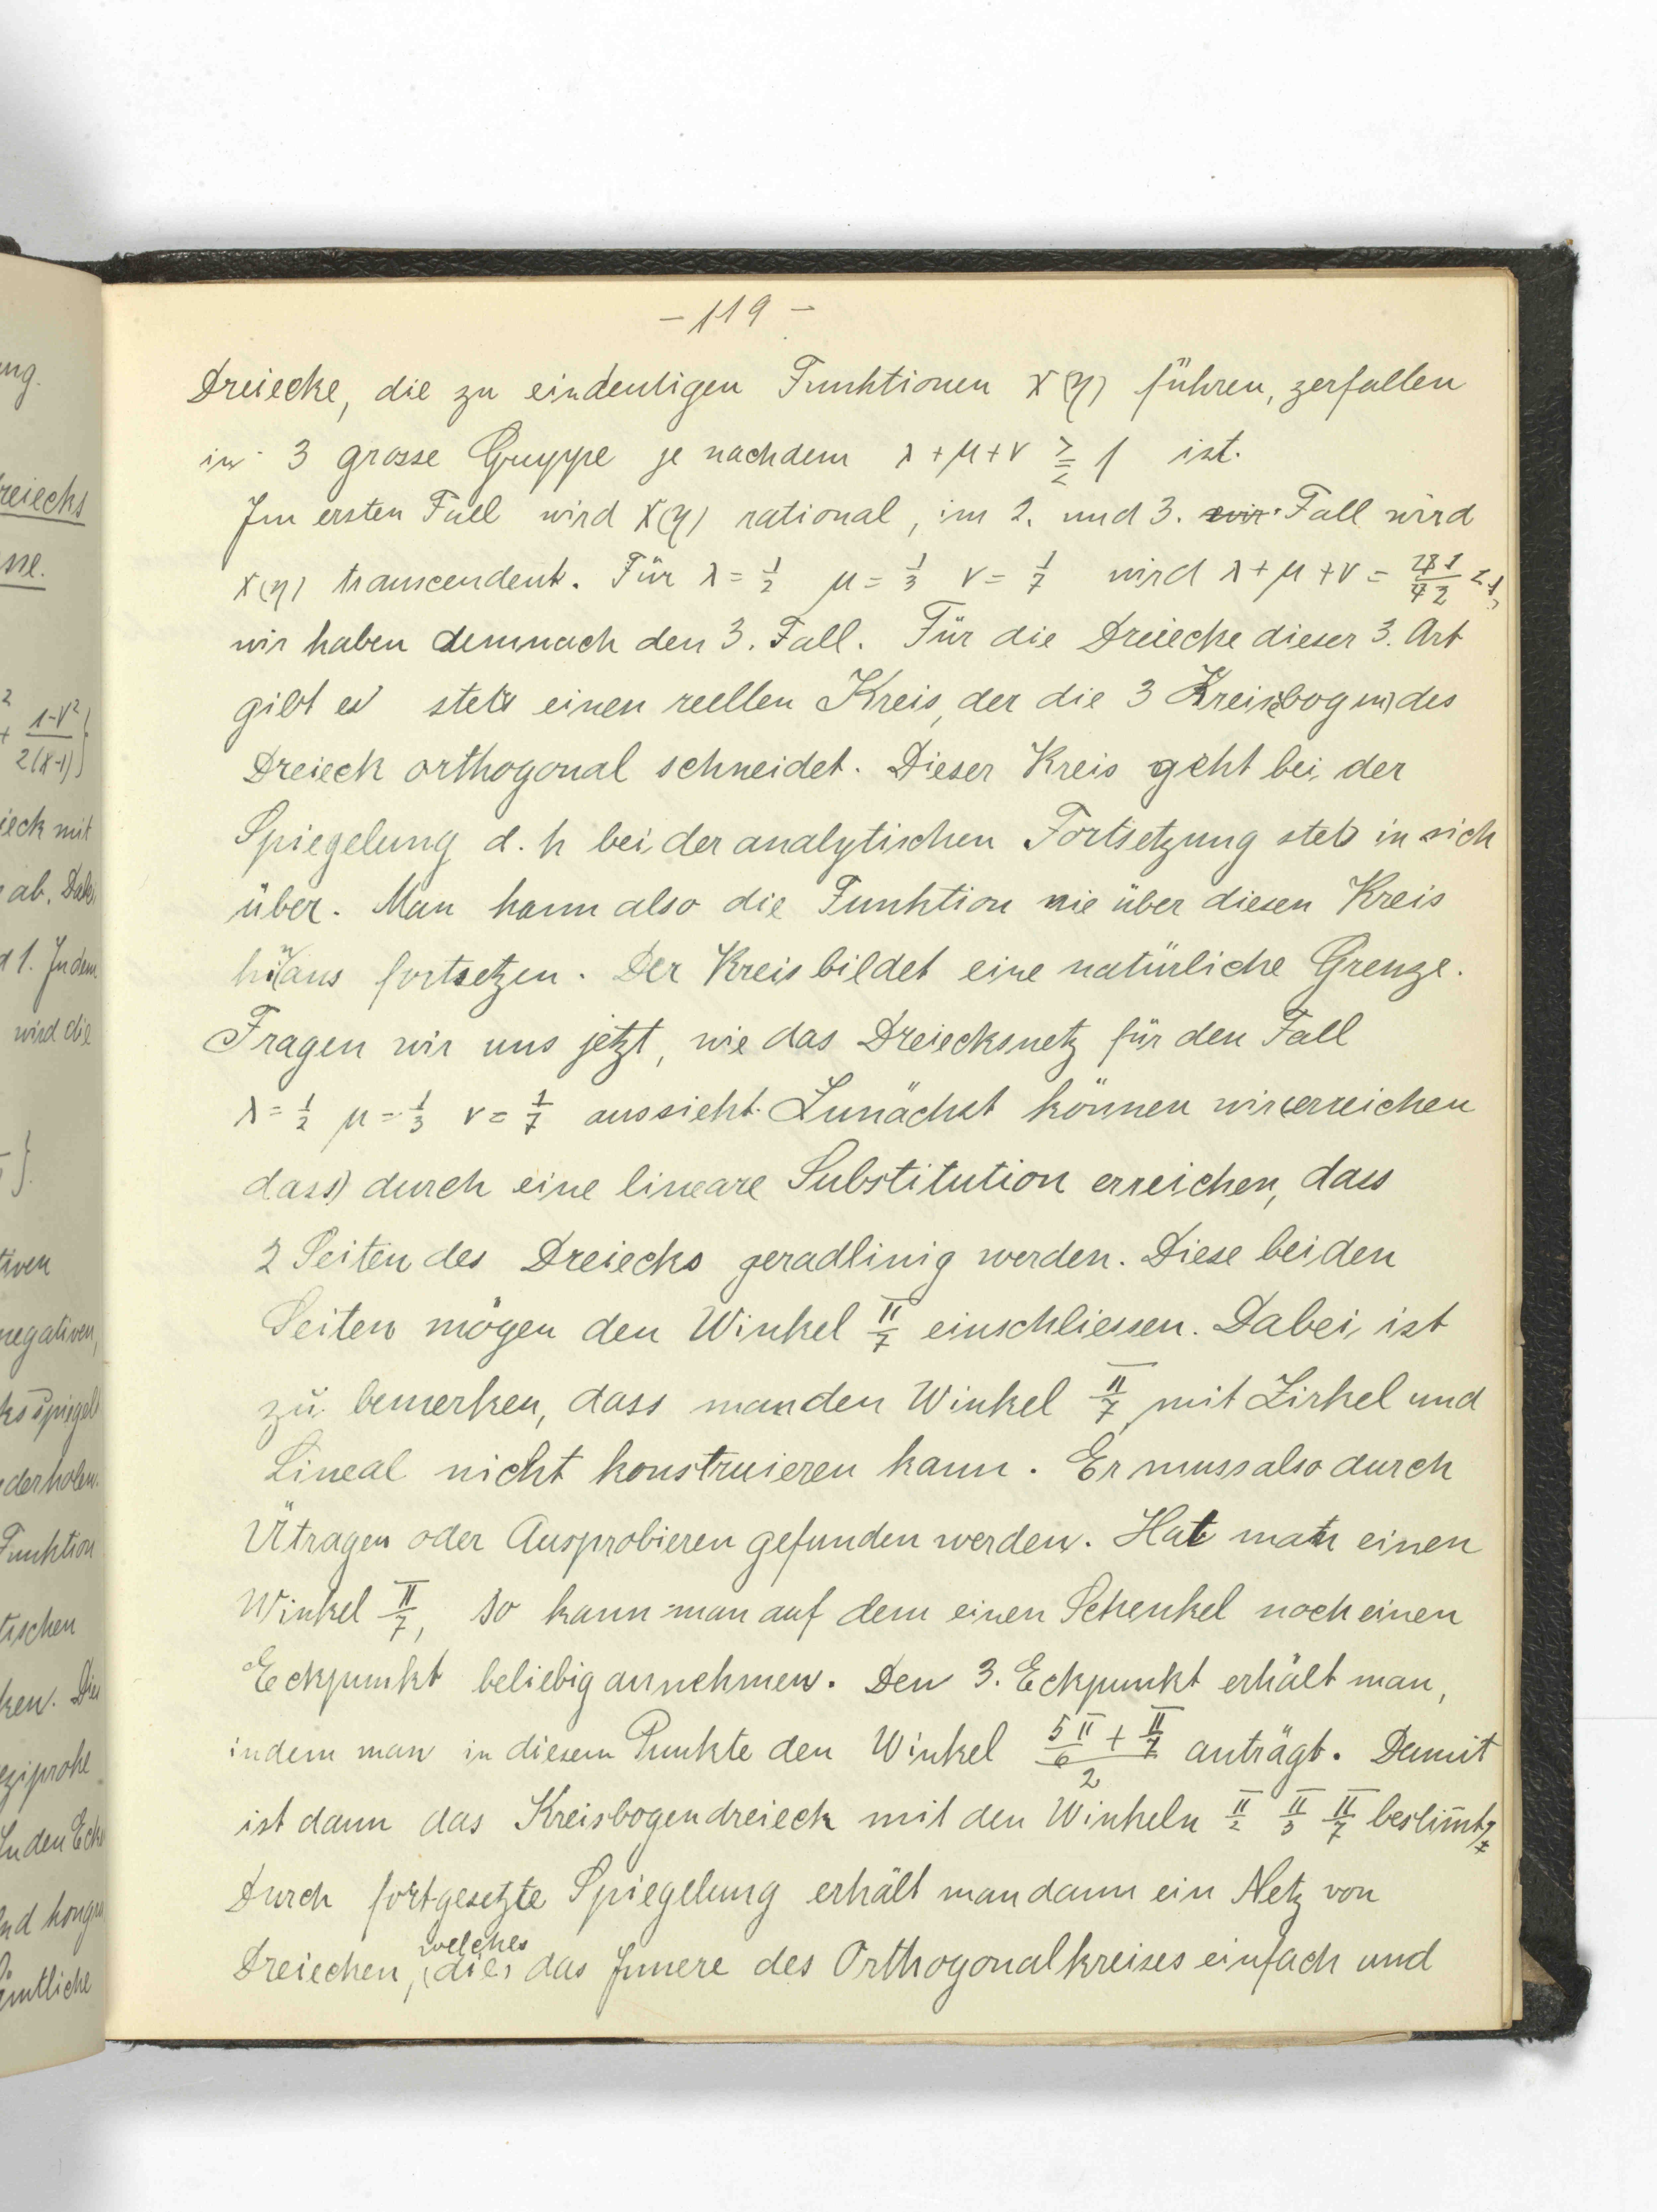 – 119 –
Dreiecke, die zu eindeutigen Funktionen x(η) führen, zerfallen
in 3 grosse Gruppe je nachdem λ+μ+ν ⋛ 1 ist.
Im ersten Fall wird x(η) rational, im 2. und 3. wir Fall wird
x(η) transcendent. Für λ = 1/2 μ = 1/3 ν = 1/7 wird λ+μ+ν = 41/42 < 1,
wir haben demnach den 3. Fall. Für die Dreiecke dieser 3. Art
gibt es stets einen reellen Kreis, der die 3 Kreis(bogen) des
Dreieck orthogonal schneidet. Dieser Kreis geht bei der
Spiegelung d. h bei der analytischen Fortsetzung stets in sich
über. Man kann also die Funktion nie über diesen Kreis
hinaus fortsetzen. Der Kreis bildet eine natürliche Grenze.
Fragen wir uns jetzt, wie das Dreiecksnetz für den Fall
λ = 1/2 μ = 1/3 ν = 1/7 aussieht. Zunächst können wir (erreichen
dass) durch eine lineare Substitution erreichen, dass
2 Seiten des Dreiecks geradlinig werden. Diese beiden
Seiten mögen den Winkel π/7 einschliessen. Dabei ist
zu bemerken, dass man den Winkel π/7 mit Zirkel und
Lineal nicht konstruieren kann. Er muss also durch
Ütragen oder Ausprobieren gefunden werden. Hat man einen
Winkel π/7, so kann man auf dem einen Schenkel noch einen
Eckpunkt beliebig annehmen. Den 3. Eckpunkt erhält man,
indem man in diesem Punkte den Winkel (5π/6 + π/7)/2 anträgt. Damit
ist dann das Kreisbogendreieck mit den Winkeln π/2 π/3 π/7 bestim̅t
Durch fortgesetzte Spiegelung erhält man dann ein Netz von
Dreiecken, (die) welches das Innere des Orthogonalkreises einfach und